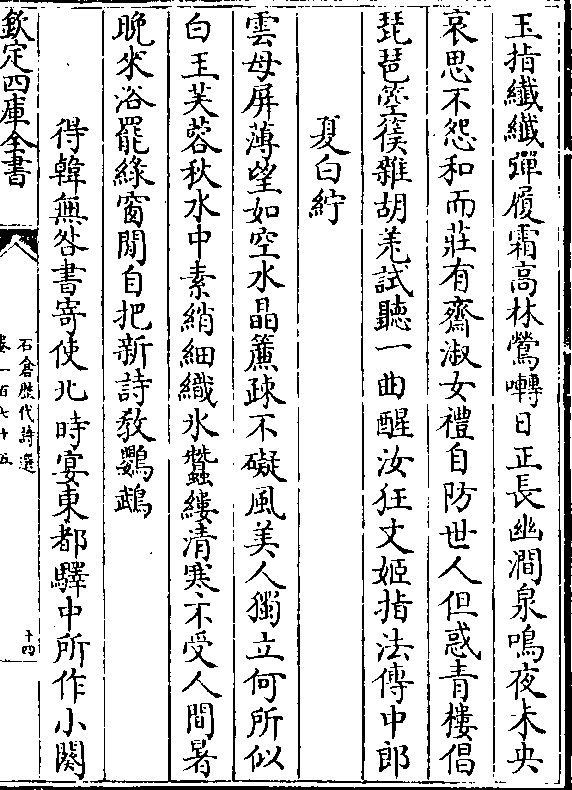 玉指纖纖彈履霜高林鶯囀日正長幽澗泉鳴夜未央
哀思不怨和而莊有齋淑女禮自防世人但惑青樓倡
琵琶箜篌雜胡羌試聽一曲醒汝狂丈姬指法傳中郎
夏白紵
雲母屏薄望如空水晶簾疎不礙風美人獨立何所似
白玉芙蓉秋水中素綃細織氷蠶縷清寒不受人間暑
晚來浴罷綠窗閒自把新詩敎鸚鵡
得韓無咎書寄使北時宴東都驛中所作小闋
欽定四庫全書
石倉歴代詩選
卷一百七十五
十四